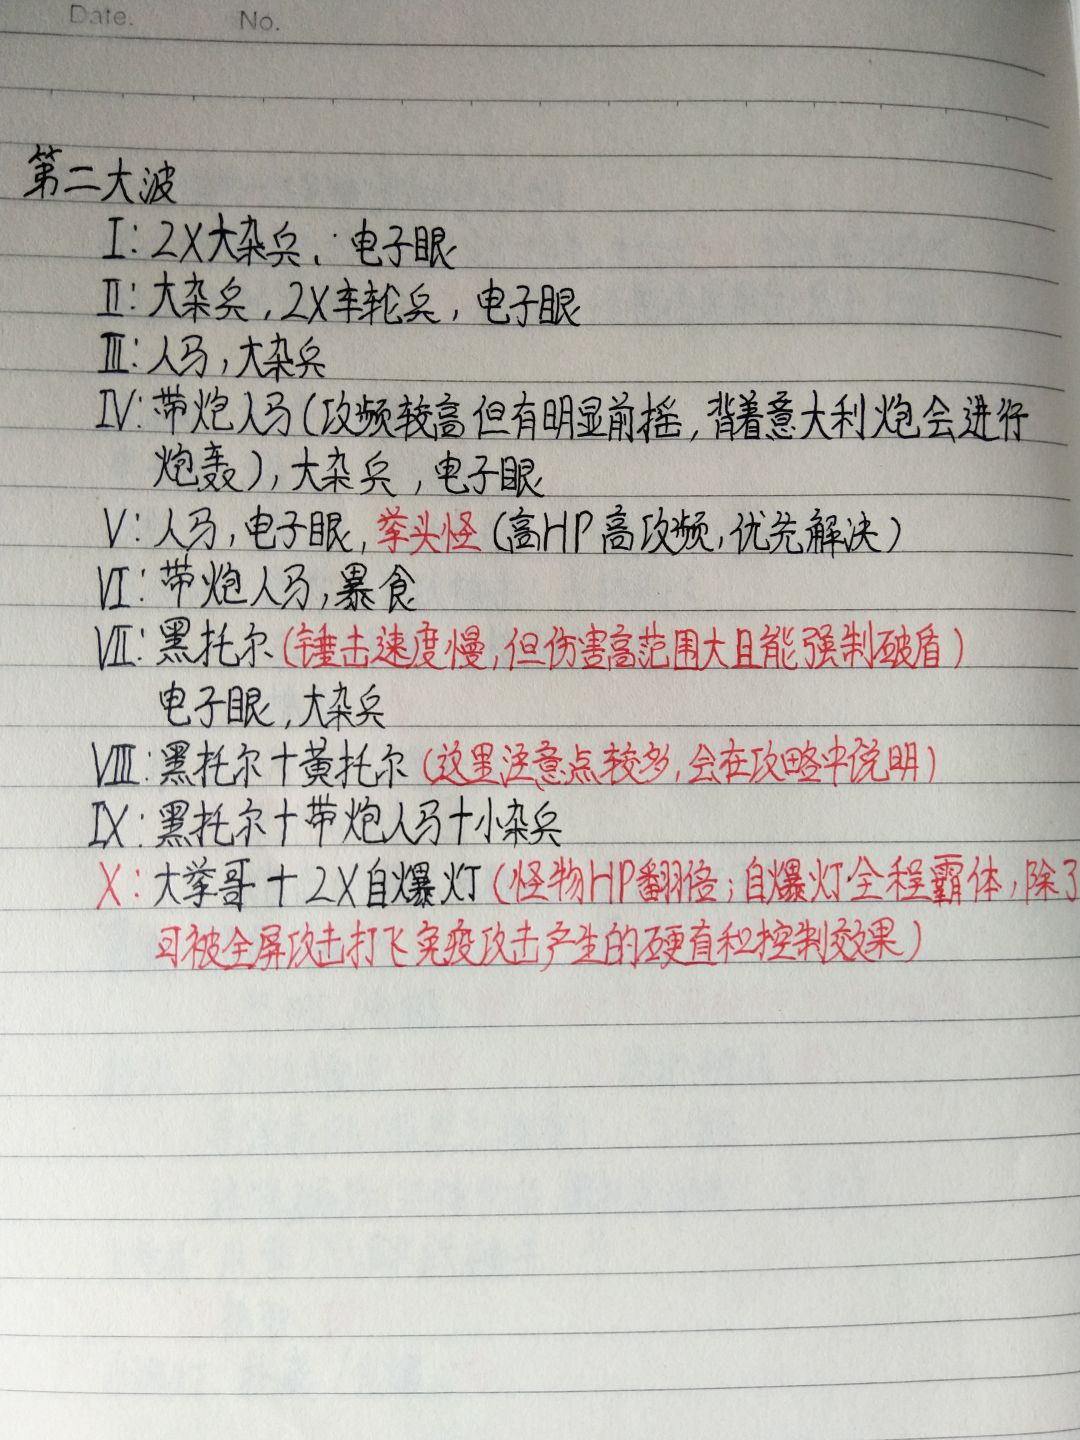 Date. No.
第二大波
I：2X大杂兵，电子眼
II：大杂兵，2X车轮兵，电子眼
III：人马，大杂兵
IV：带炮人马（攻频较高但有明显前摇，背着意大利炮会进行
炮轰），大杂兵，电子眼
V：人马，电子眼，拳头怪（高HP高攻频，优先解决）
VI：带炮人马，暴食
VII：黑托尔（锤击速度慢，但伤害高范围大且能强制破盾）
电子眼，大杂兵
VIII：黑托尔+黄托尔（这里注意点较多，会在攻略中说明）
IX：黑托尔+带炮人马+小杂兵
X：大拳哥+2X自爆灯（怪物HP翻倍；自爆灯全程霸体，除了
可被全屏攻击打飞免疫攻击产生的硬直和控制效果）